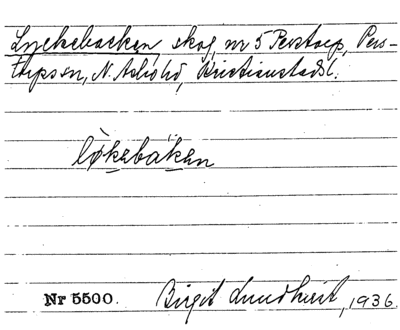 Lyckebacken skog, nr 5 Perstorp, Pers-
torps sn, N. Åsbo hd, Kristianstads l.
lø̀kebáken
Nr 5500. Birgit Lundkvist, 1936.